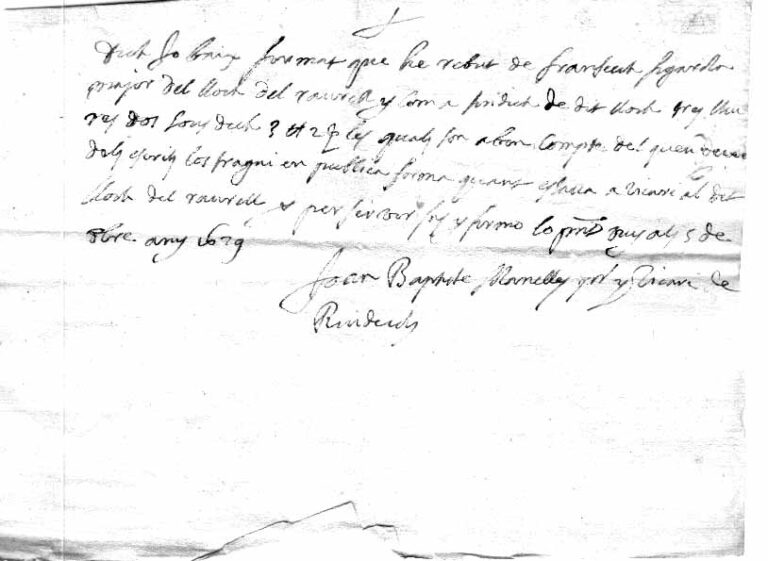 Dich Jo baix firmat que he rebut de Fransech figarola
major del lloch del ravrell y com a sindich de dit lloch tres lliu
res dos sous dich 3 ll 2 s les quals son a bon compte del que
dels escrits los fragui en publica forma quant estava a vicari al dit
lloch del ravrell y per ser ver fas y firmo lo pnt vuy als 5 de
obre. any 1629
Joan Baptiste pre y Vicari de
Riudecols